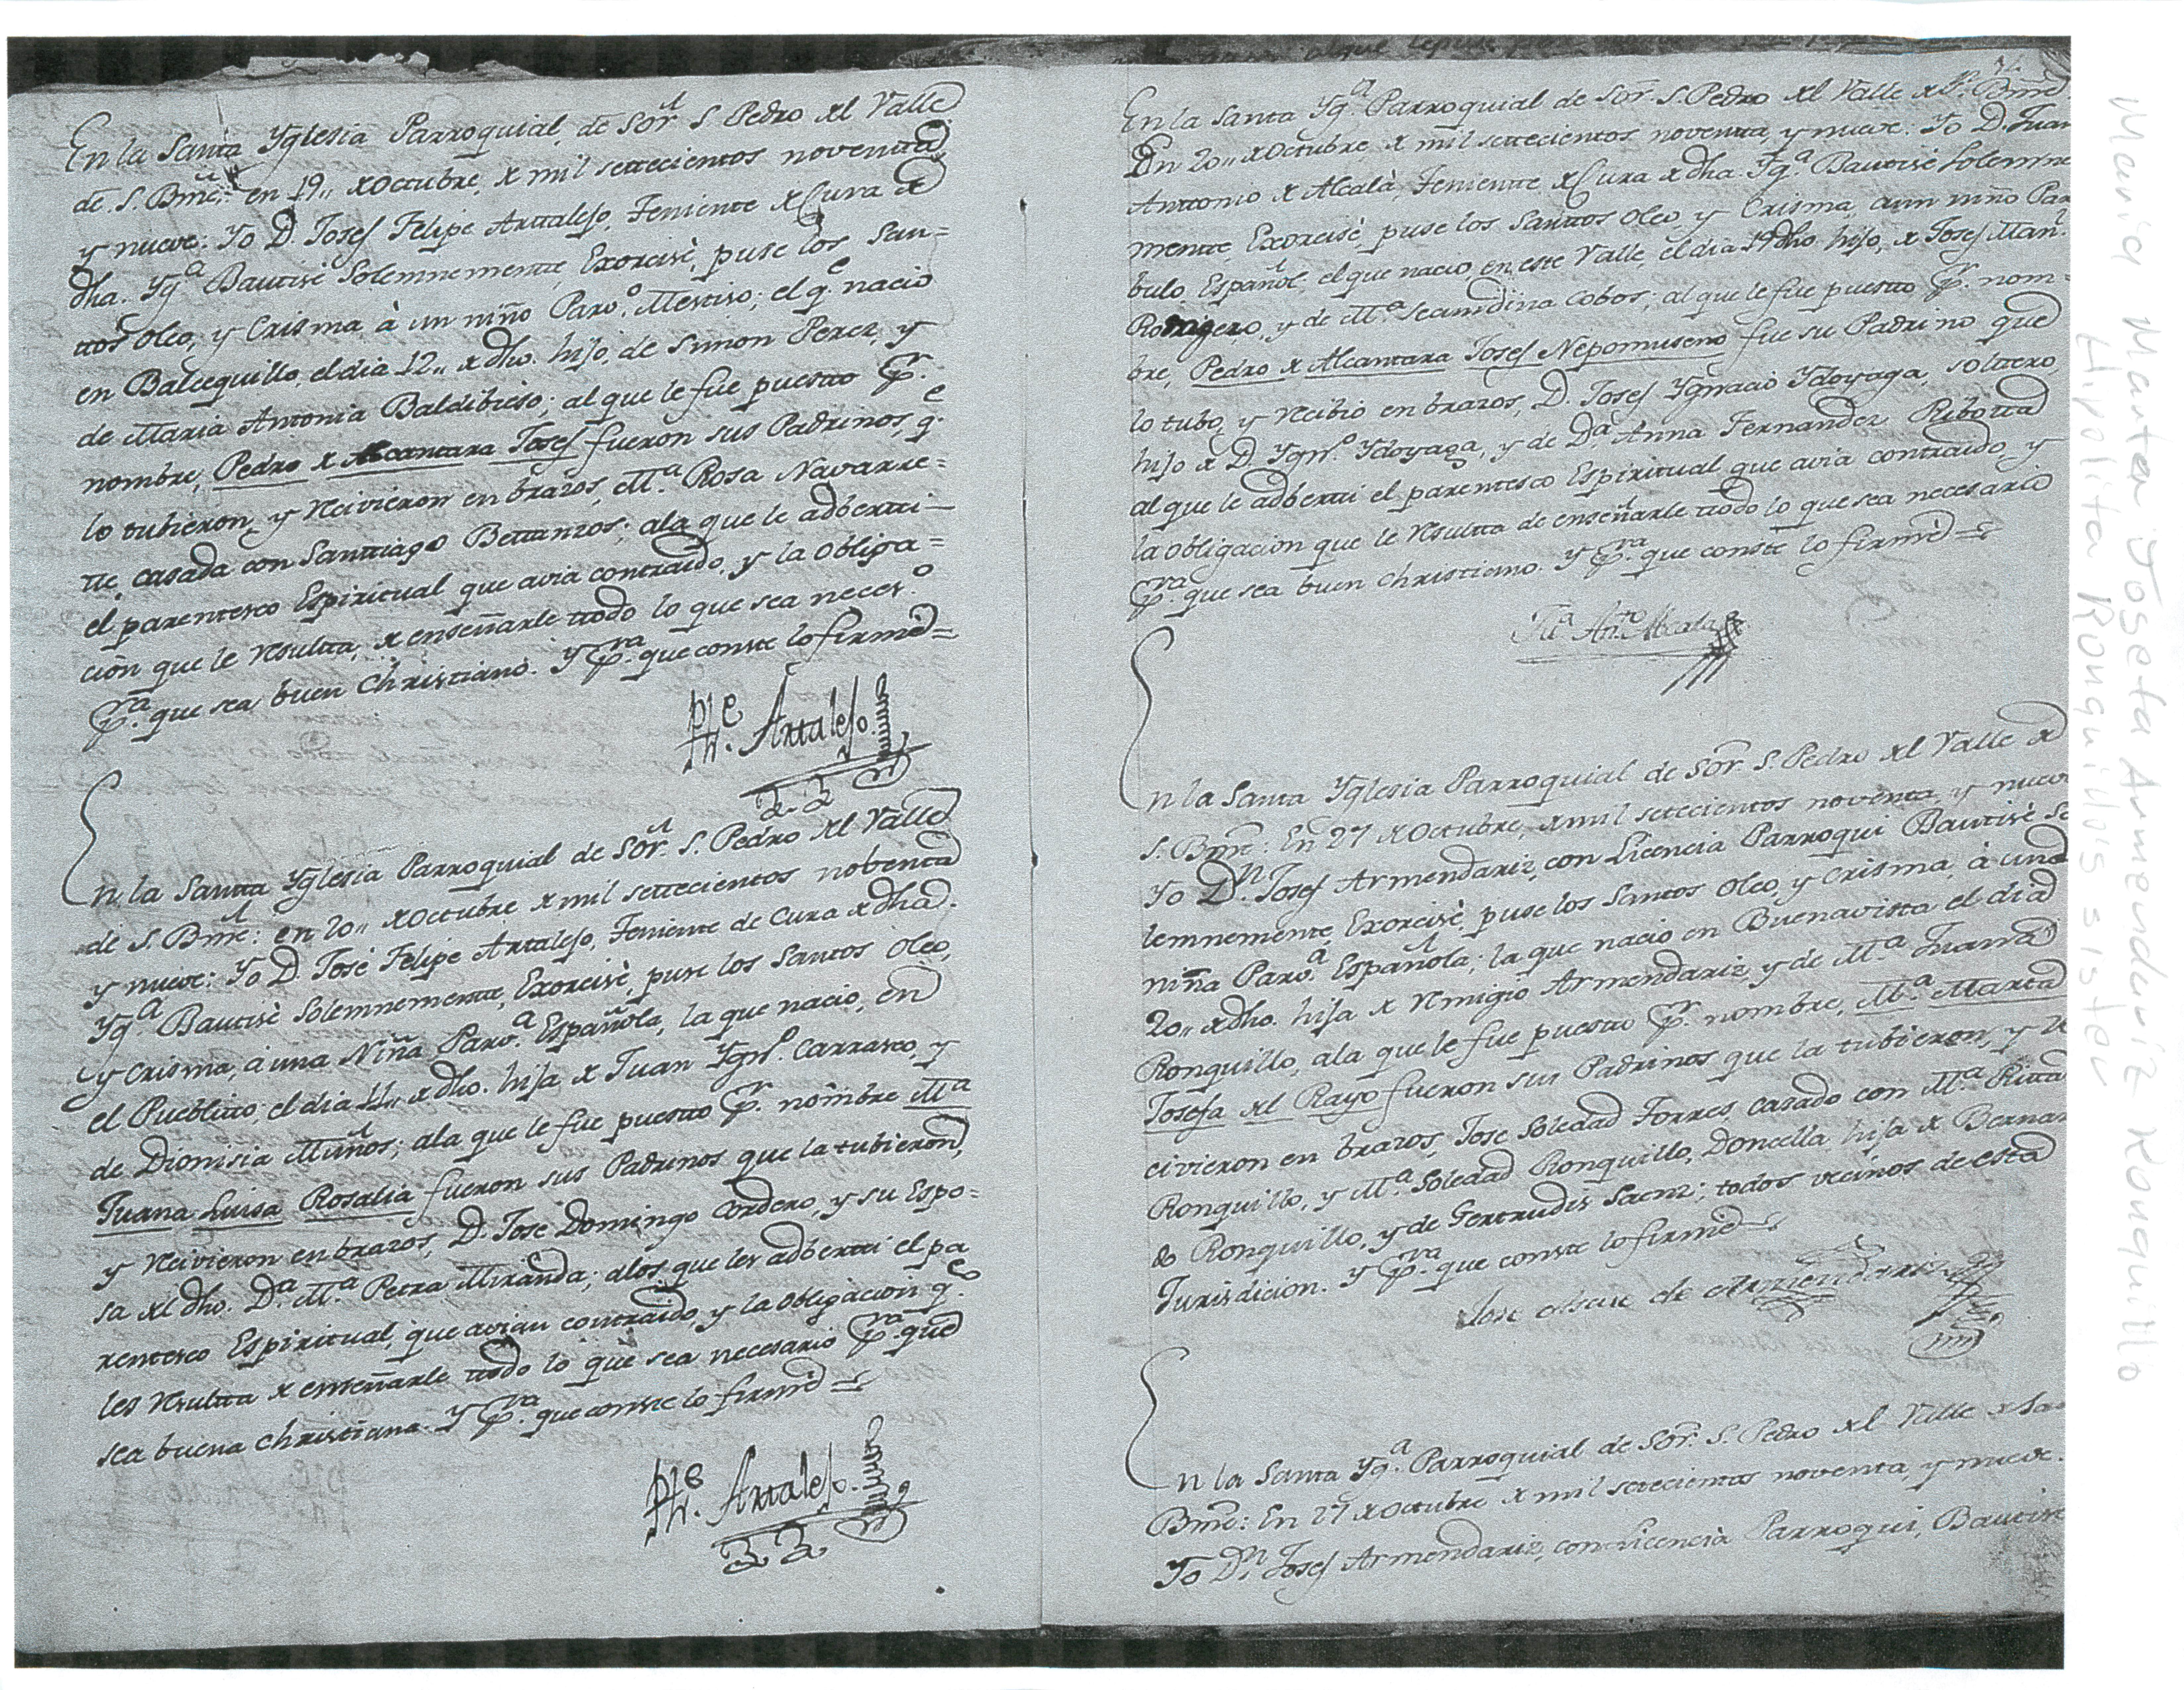 En la Santa Yglesia Parroquial, de Sor. S. Pedro del Valle
de S. Bme: en 19,, de Octubre, de mil settecientos noventa,
y nueve: Yo D. Josef Felipe Arttalejo, Teniente de Cura de
dha. Yga. Bautisé Solemnemente, Exorcisé, puse los San=
ttos Oleo, y Crisma, à un niño Parvo. Mestiso; el qe. nacio
en Balcequillo, el dia 12,, de dho. hijo, de Simon Perez, y
de Maria Antonia Baldibieso; al que le fue puesto pr.
nombre, Pedro de Alcantara Josef fueron sus Padrinos, qe.
lo tubieron, y recivieron en brazos, Ma. Rosa Navarre=
te, casada con Santtiago Bettanzos; ala que le adbertti-
el parentesco Espiritual que avia contraido, y la obliga=
ción que le resultta, de enseñarle ttodo lo que sea neceso.
pra. que sea buen Christiano. Y pra. que conste lo firmé=
Phe. Arttalejo.
En la Santta Yglesia Parroquial de Sor. S. Pedro del Valle
de S. Bme: en 20,, de Octubre de mil settecientos nobenta
y nueve: Yo D. José Felipe Arttalejo, Teniente de Cura de dha.
Yga. Bautisè Solemnemente, Exorcisè, puse los Santos Oleo,
y Crisma, à una Niña Parva. Española, la que nacio, en
el Pueblitto, el dia 11,, de dho. hija de Juan Ygno. Carrasco, y
de Dionisia Muños; ala que le fue puestto pr. nombre Ma
Juana Luisa Rosalia fueron sus Padrinos que la tubieron,
y recivieron en brazos, D. Jose Domingo Cordero, y su Espo=
sa del dho. Da. Ma. Petra Miranda; alos que les adbertti el pa
rentesco Espiritual, que avian contraido, y la obligacion qe.
les resultta de enseñarle ttodo lo que sea necesario pra. que
sea buena Christiana. Y pra. que conste lo firmé=
Phe. Arttalejo.
En la Santa Yga. Parroquial de Sor. S. Pedro del Valle de S. Bme.
En 20,, de Octubre, de mil settecientos noventta, y nueve: Yo D. Juan
Anttonio de Alcalà, Teniente de Cura de dha. Yga. Bautisé Solemne
mente, Exorcisè, puse los Santtos Oleo, y Crisma, a un niño Par
bulo Español; el que nacio, en este Valle, el dia 19 dho. hijo, de Josef Man.
y de Ma. Secundina Cobos; al que le fue puestto pr. nom=
bre, Pedro de Alcantara Josef Nepomuseno fue su Padrino que
lo tubo, y recibio en brazos, D. Josef Ygnacio Ydoyaga, soltero,
hijo de D. Ygno. Ydoyaga, y de Da. Anna Fernandez Ribotta
al que le adbertti el parentesco Espiritual que avia contraido, y
la obligacion que le resultta de enseñarle ttodo lo que sea necesario
pra. que sea buen Christiano. Y pra. que conste lo firmé=
Anto. Alcala
En la Santa Yglesia Parroquial de Sor. S. Pedro del Valle de
S. Bme: En 27 de Octubre, de mil settecientos noventa, y nueve
Yo Dn. Josef Armendariz, con Licencia Parroqui Bautisè So
lemnemente, Exorcisè, puse los Santos Oleo, y Crisma, à una
niña Parva. Española; la que nacio en Buenavista el dia
20,, de dho. hija de Remigio Armendariz, y de Ma. Juana
Ronquillo, ala que le fue puestto pr. nombre, Ma. Marta
Josefa del Rayo fueron sus Padrinos que la tubieron, y re
civieron en brazos, Jose Soledad Torres, casado con Ma. Ritta
Ronquillo, y Ma. Soledad Ronquillo, Doncella, hija de Bernar
do Ronquillo, y de Gertrudis Saenz; todos vecinos de esta
Jurisdicion. Y pra. que conste lo firmé
Jose de Armendariz
En la Santa Yga. Parroquial de Sor. S. Pedro del Valle de San
Bme: En 27 de Octubre de mil settecientos noventa, y nueve.
Yo Dn. Josef Armendariz, con Licencia Parroqui, Bautise
Maria Marta Josefa Armendariz Ronquillo
Hipolita Ronquillo's sister